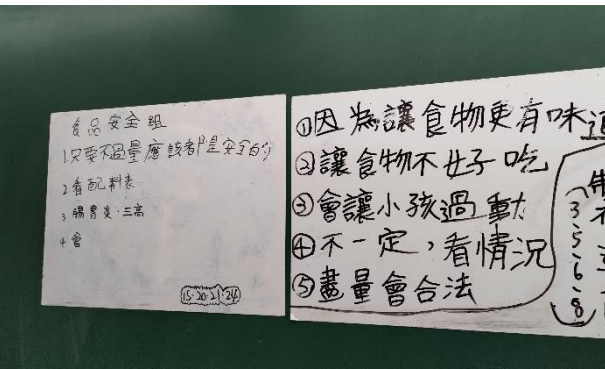 食品安全組
1.只要不過量應該都是安全的
2 看配料表
3 腸胃炎、三高
4 會
15.20.21.24
①因為讓食物更有味道
②讓食物不好吃
③會讓小孩過動
④不一定，看情況
⑤盡量會合法
3
5
6
8